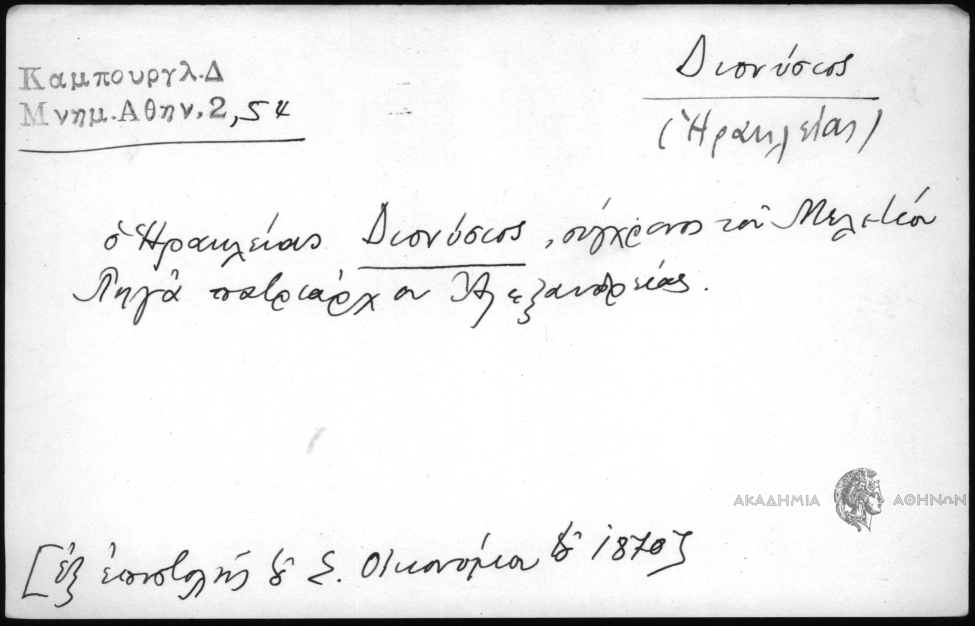 Καμπουργλ.Δ
Μνημ.Αθην.2,54
Διονύσιος
(Ἡρακλείας)
ὁ Ἡρακλείας Διονύσιος, σύγχρονος τοῦ Μελετίου
Πηγᾶ πατριάρχου Ἀλεξανδρείας.
ΑΚΑΔΗΜΙΑ ΑΘΗΝΩΝ
[ἐξ ἐπιστολῆς τοῦ Σ. Οἰκονόμου τοῦ 1870]